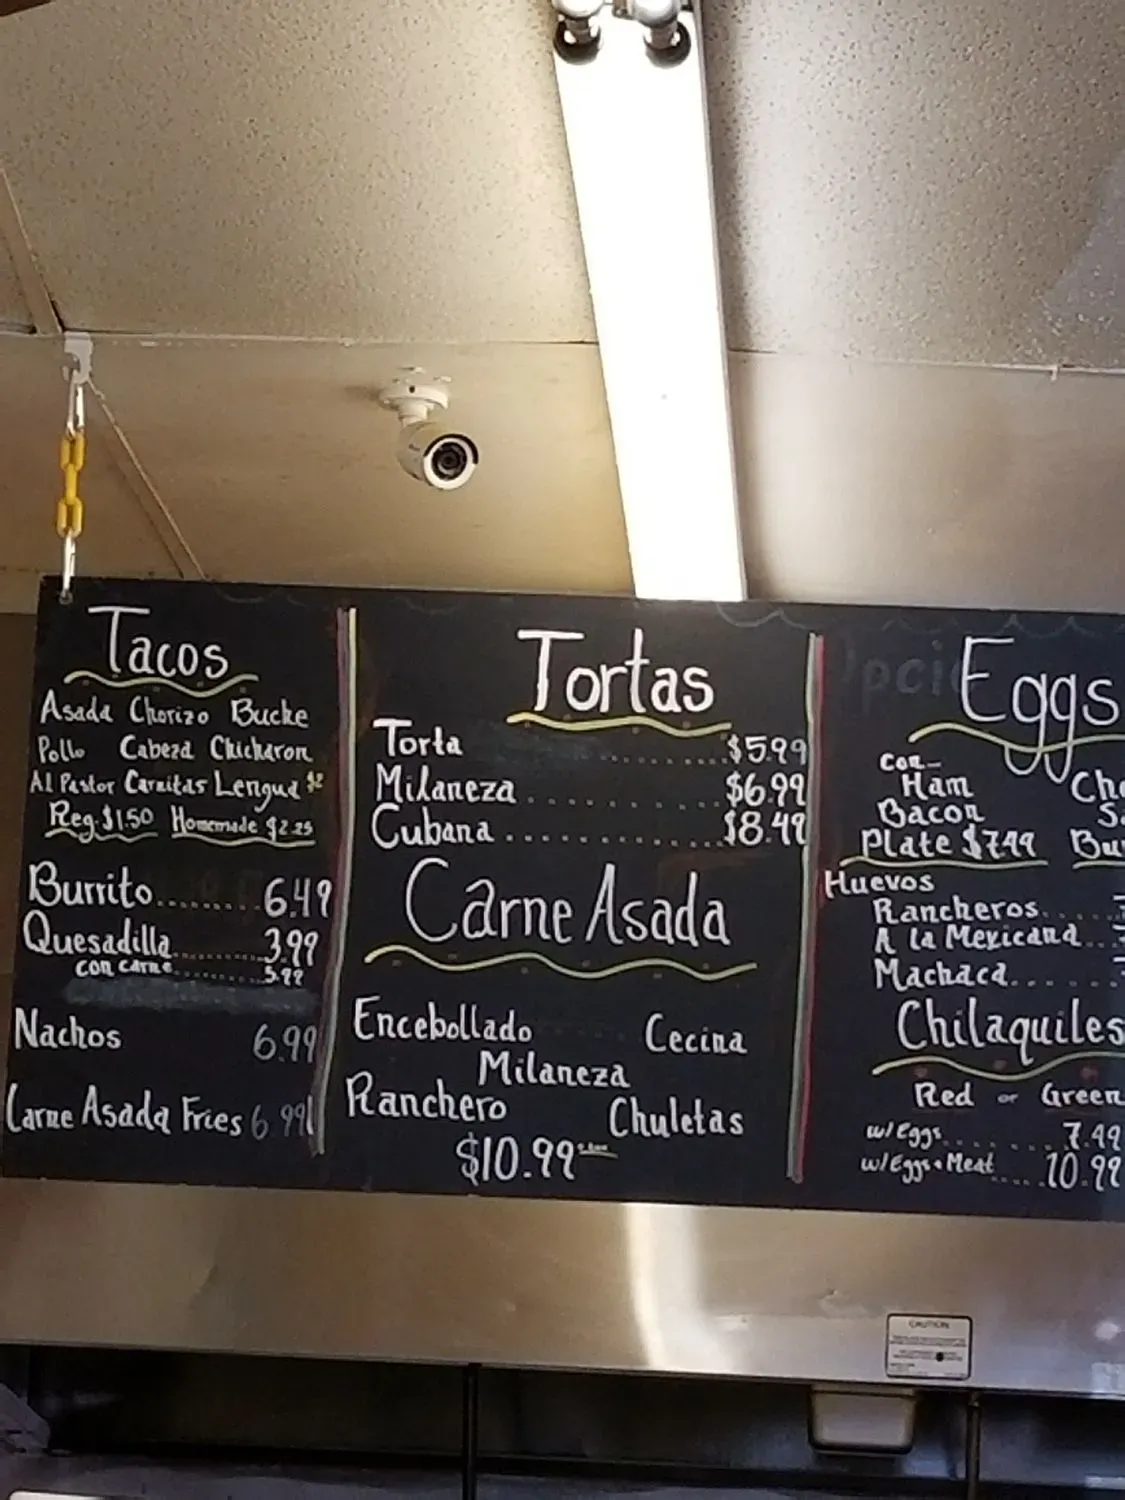 Tacos
Asada Chorizo Buche
Pollo Cabeza Chicharon
Al Pastor Carnitas Lengua $2
Reg. $1.50 Homemade $2.25
Burrito......... 6.49
Quesadilla............ 3.99
con carne............ 5.99
Nachos 6.99
Carne Asada Fries 6.99
Tortas
Torta ......... $5.99
Milaneza ............ $6.99
Cubana ............ $8.49
Carne Asada
Encebollado Cecina
Milaneza
Ranchero Chuletas
$10.99
Eggs
Con
Ham
Bacon
Plate $7.49
Huevos
Rancheros
A la Mexicana
Machaca
Chilaquiles
Red or Green
w/Eggs ....... 7.49
w/Eggs + Meat ..... 10.99
CAUTION